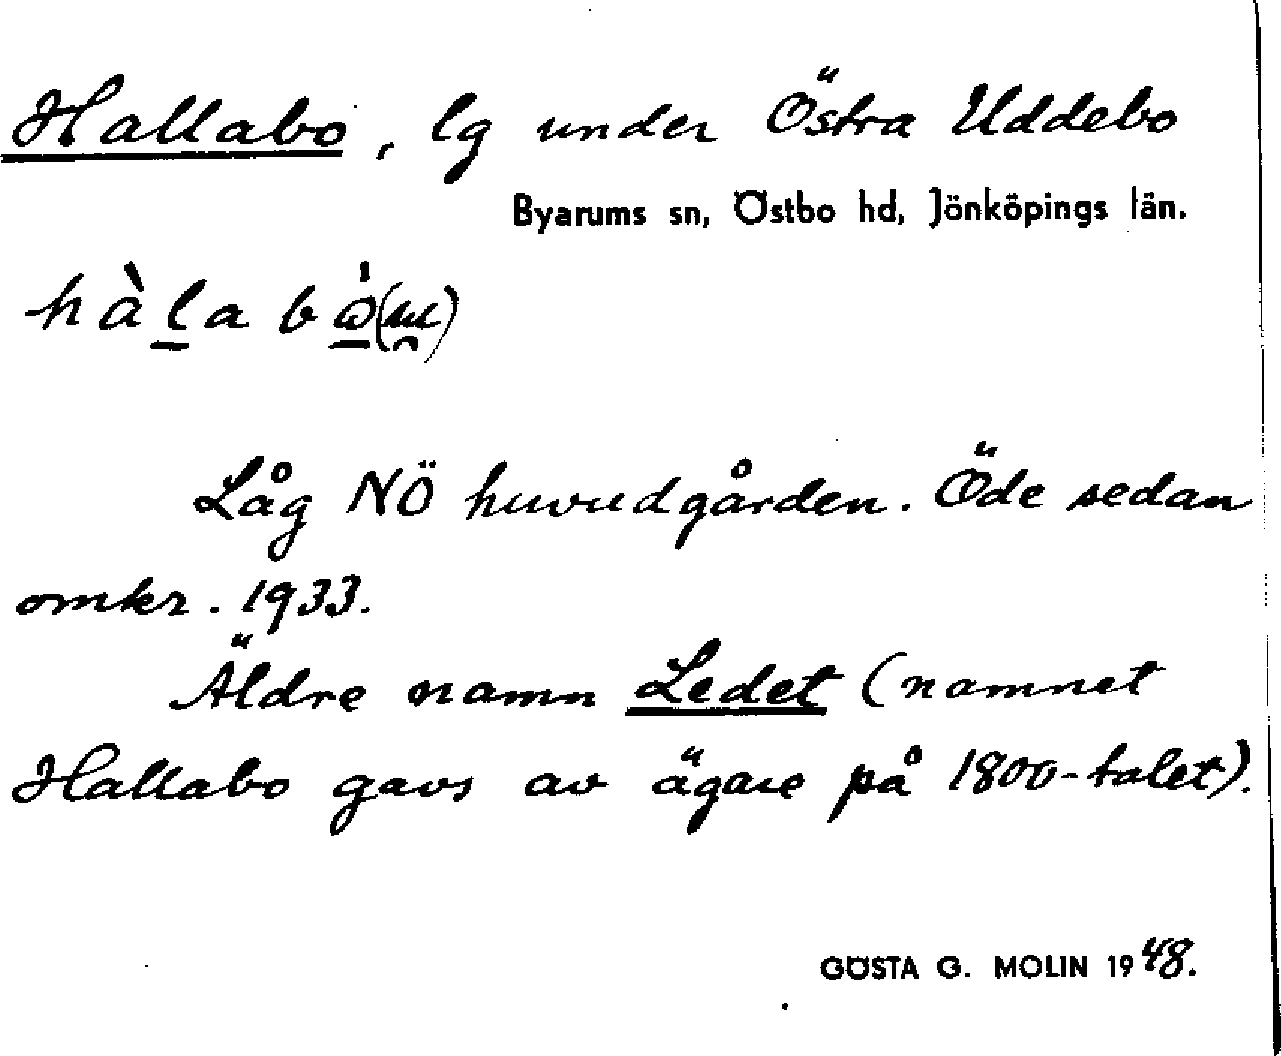 Hallabo, lg under Östra Uddebo
Byarums sn, Östbo hd, Jönköpings län.
Låg NÖ huvudgården. Öde sedan
omkr. 1933.
Äldre namn Ledet (namnet
Hallabo gavs av ägare på 1800-talet).
GÖSTA G. MOLIN 1948.